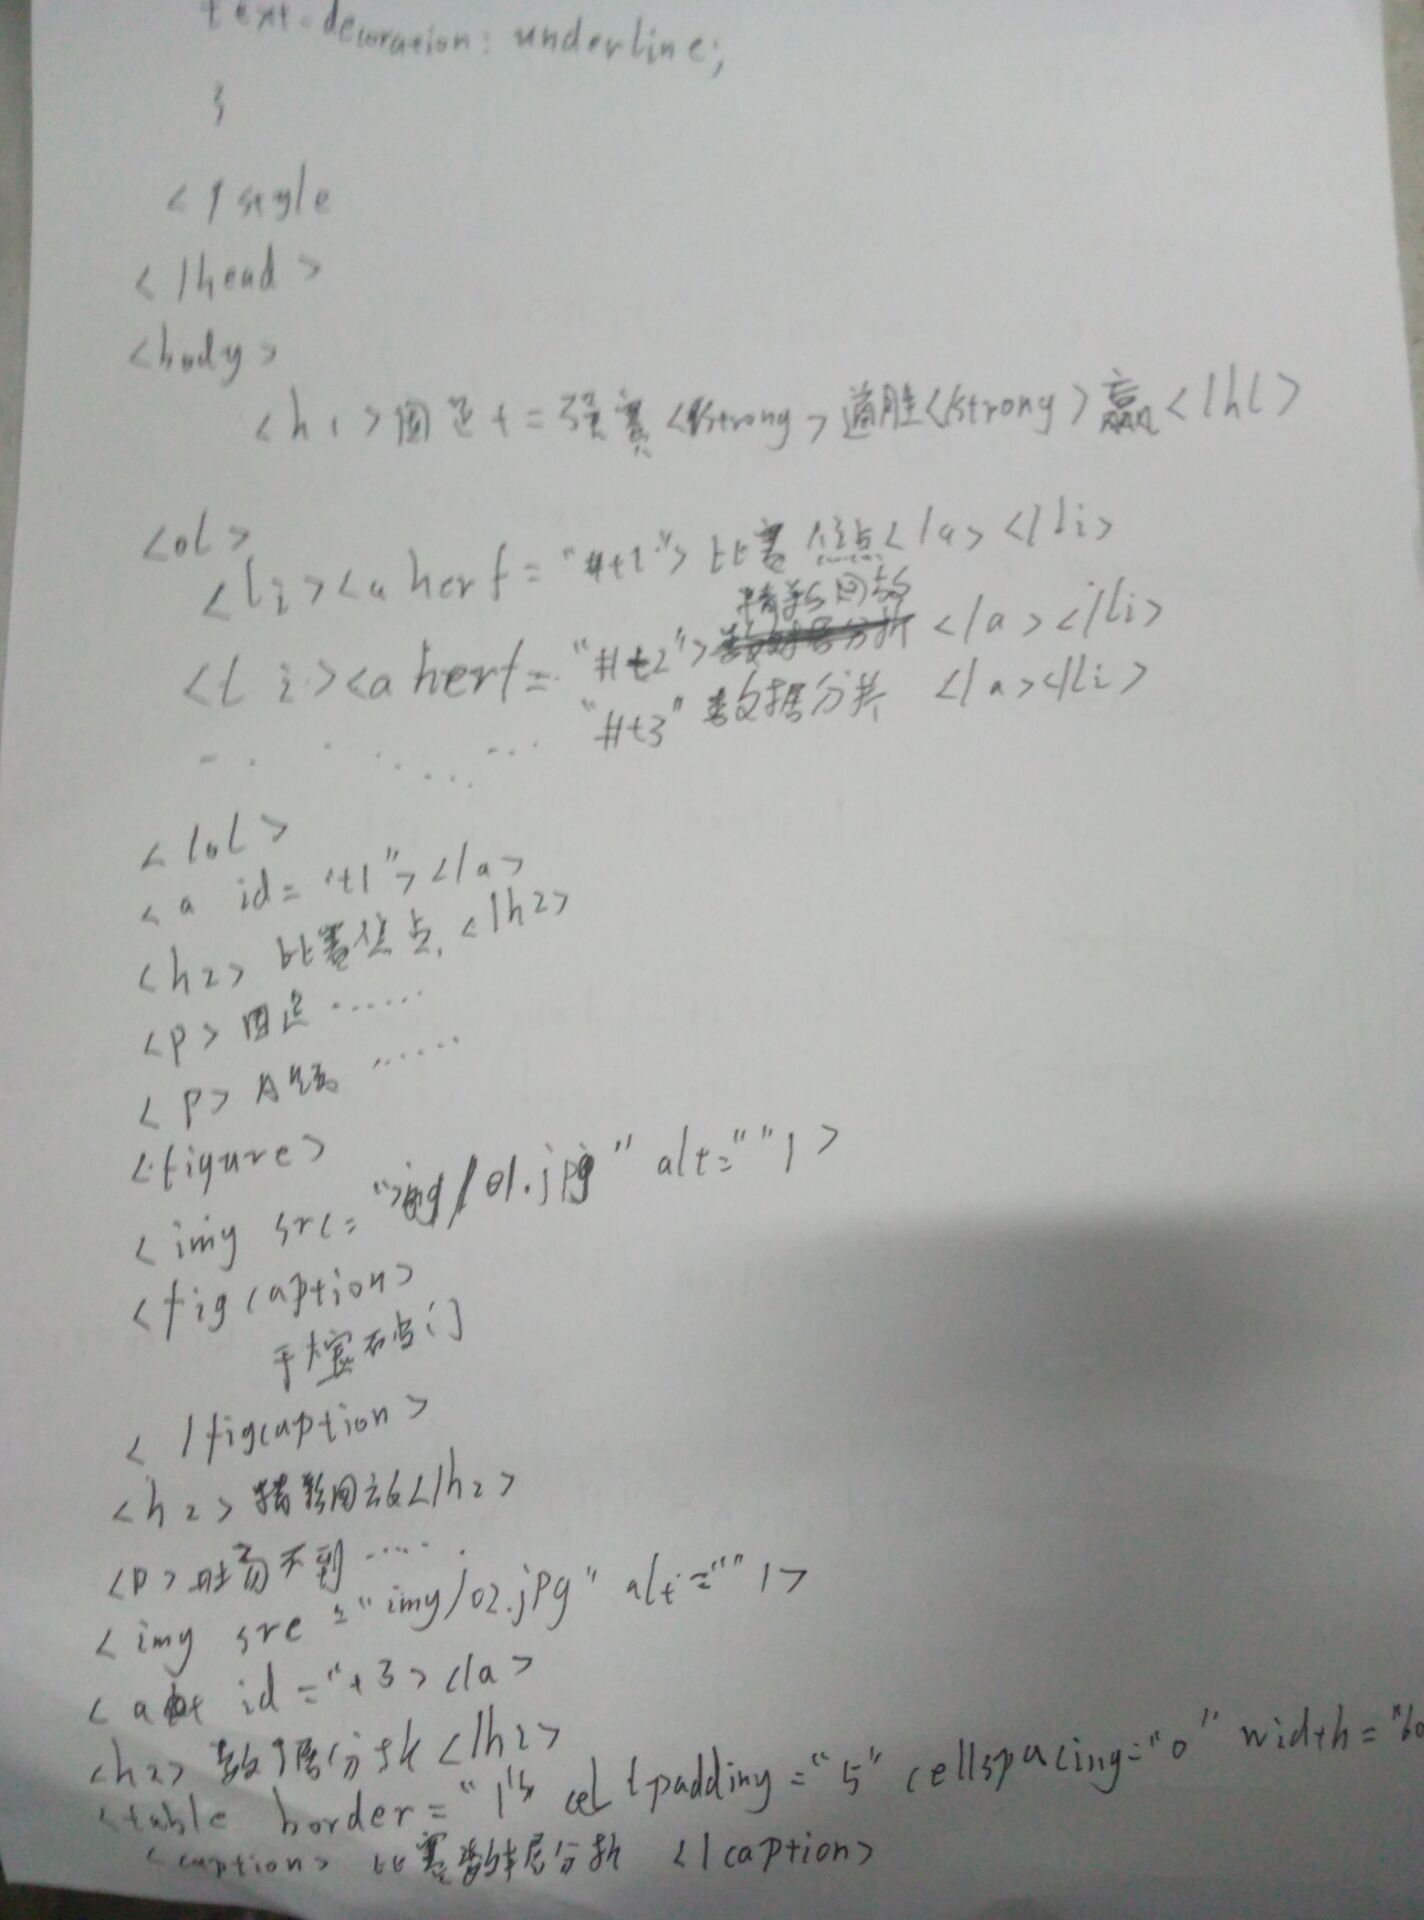 text-decoration: underline;
}
</style
</head>
<body>
<h1>国足十二强赛<strong>逼胜<strong>赢</h1>
<ol>
<li><a herf="#t1">比赛焦点</a></li>
精彩回放
<li><a herf="#t2"></a></li>
"#t3" 数据分 </a></li>
</ol>
<a id="t1"></a>
<h2>比赛焦点</h2>
<p>国足……
<p>A组……
<figure>
<img src="img/01.jpg" alt=""/>
<figcaption>
于大宝破门
</figcaption>
<h2>精彩回放</h2>
<p>不到……
<img sre="img/02.jpg" alt=""/>
<a id="t3></a>
<h2>数据分折</h2>
<table border="1" cellpadding="5" cellspacing="0" width="60
<caption>比赛数据分折</caption>